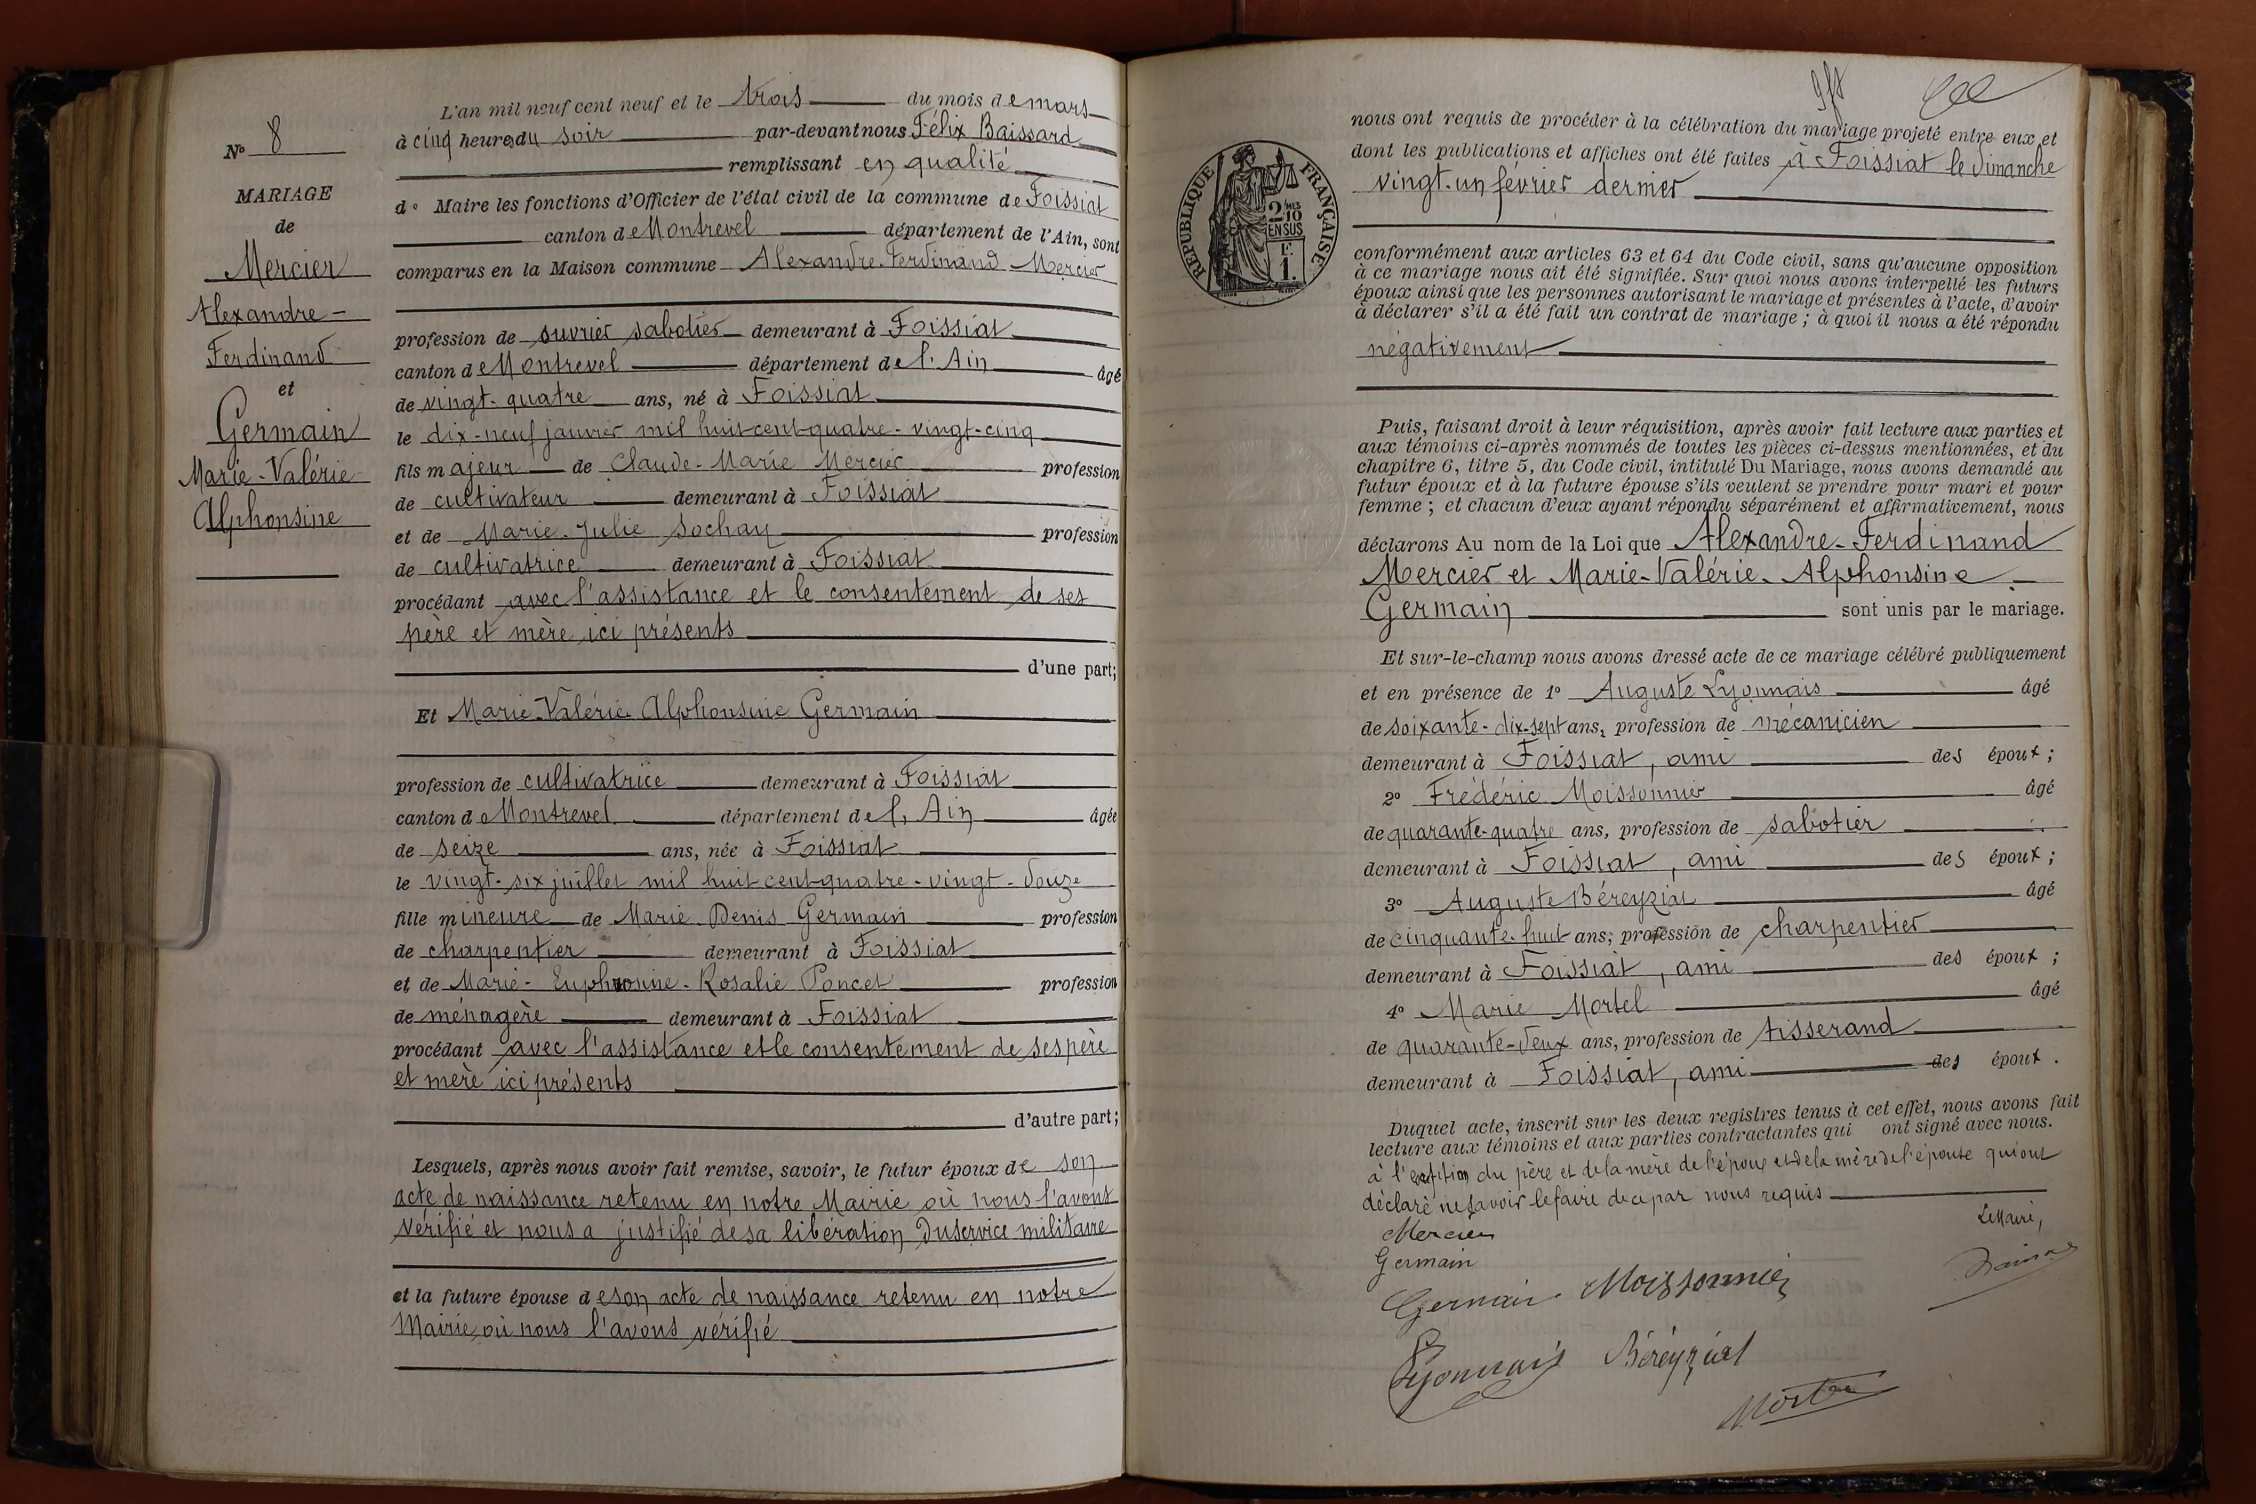 N° 8
MARIAGE
de
Mercier
Alexandre-
Ferdinand
et
Germain
Marie-Valérie
Alphonsine
L'an mil neuf cent neuf et le trois du mois de mars
à cinq heures du soir par-devant nous Félix Baissard
remplissant en qualité
de Maire les fonctions d'Officier de l'état civil de la commune de Foissiat
canton de Montrevel département de l'Ain, sont
comparus en la Maison commune Alexandre-Ferdinand Mercier
profession de ouvrier sabotier demeurant à Foissiat
canton de Montrevel département de l'Ain âgé
de vingt-quatre ans, né à Foissiat
le dix-neuf janvier mil huit cent quatre-vingt-cinq
fils majeur de Claude-Marie Mercier profession
de cultivateur demeurant à Foissiat
et de Marie-Julie Sochay profession
de cultivatrice demeurant à Foissiat
procédant avec l'assistance et le consentement de ses
père et mère ici présents
d'une part;
Et Marie-Valérie-Alphonsine Germain
profession de cultivatrice demeurant à Foissiat
canton de Montrevel département de l'Ain âgée
de seize ans, née à Foissiat
le vingt-six juillet mil huit cent quatre-vingt-douze
fille mineure de Marie-Denis Germain profession
de charpentier demeurant à Foissiat
et de Marie-Euphrosine-Rosalie Poncet profession
de ménagère demeurant à Foissiat
procédant avec l'assistance et le consentement de ses père
et mère ici présents
d'autre part;
Lesquels, après nous avoir fait remise, savoir, le futur époux de son
acte de naissance retenu en notre Mairie où nous l'avons
vérifié et nous a justifié de sa libération du service militaire
et la future épouse de son acte de naissance retenu en notre
Mairie, où nous l'avons vérifié
RÉPUBLIQUE FRANÇAISE
2/10
EN SUS
F.
1.
nous ont requis de procéder à la célébration du mariage projeté entre eux et
dont les publications et affiches ont été faites à Foissiat le dimanche
vingt-un février dernier
conformément aux articles 63 et 64 du Code civil, sans qu'aucune opposition
à ce mariage nous ait été signifiée. Sur quoi nous avons interpellé les futurs
époux ainsi que les personnes autorisant le mariage et présentes à l'acte, d'avoir
à déclarer s'il a été fait un contrat de mariage ; à quoi il nous a été répondu
négativement
Puis, faisant droit à leur réquisition, après avoir fait lecture aux parties et
aux témoins ci-après nommés de toutes les pièces ci-dessus mentionnées, et du
chapitre 6, titre 5, du Code civil, intitulé Du Mariage, nous avons demandé au
futur époux et à la future épouse s'ils veulent se prendre pour mari et pour
femme ; et chacun d'eux ayant répondu séparément et affirmativement, nous
déclarons Au nom de la Loi que Alexandre-Ferdinand
Mercier et Marie-Valérie-Alphonsine
Germain sont unis par le mariage.
Et sur-le-champ nous avons dressé acte de ce mariage célébré publiquement
et en présence de 1° Auguste Lyonnais âgé
de soixante-dix-sept ans, profession de mécanicien
demeurant à Foissiat, ami des époux ;
2° Frédéric Moissonnier âgé
de quarante-quatre ans, profession de sabotier
demeurant à Foissiat, ami des époux ;
3° Auguste Béreyziat âgé
de cinquante-huit ans, profession de charpentier
demeurant à Foissiat, ami des époux ;
4° Marie Mortel âgé
de quarante-deux ans, profession de tisserand
demeurant à Foissiat, ami des époux.
Duquel acte, inscrit sur les deux registres tenus à cet effet, nous avons fait
lecture aux témoins et aux parties contractantes qui ont signé avec nous.
à l' du père et de la mère de l'époux et de la mère de l'épouse qui ont
déclaré ne savoir le faire de ce par nous requis
Le Maire,
Mercier
Germain
Germain Moissonnier
Lyonnais Béréyziat